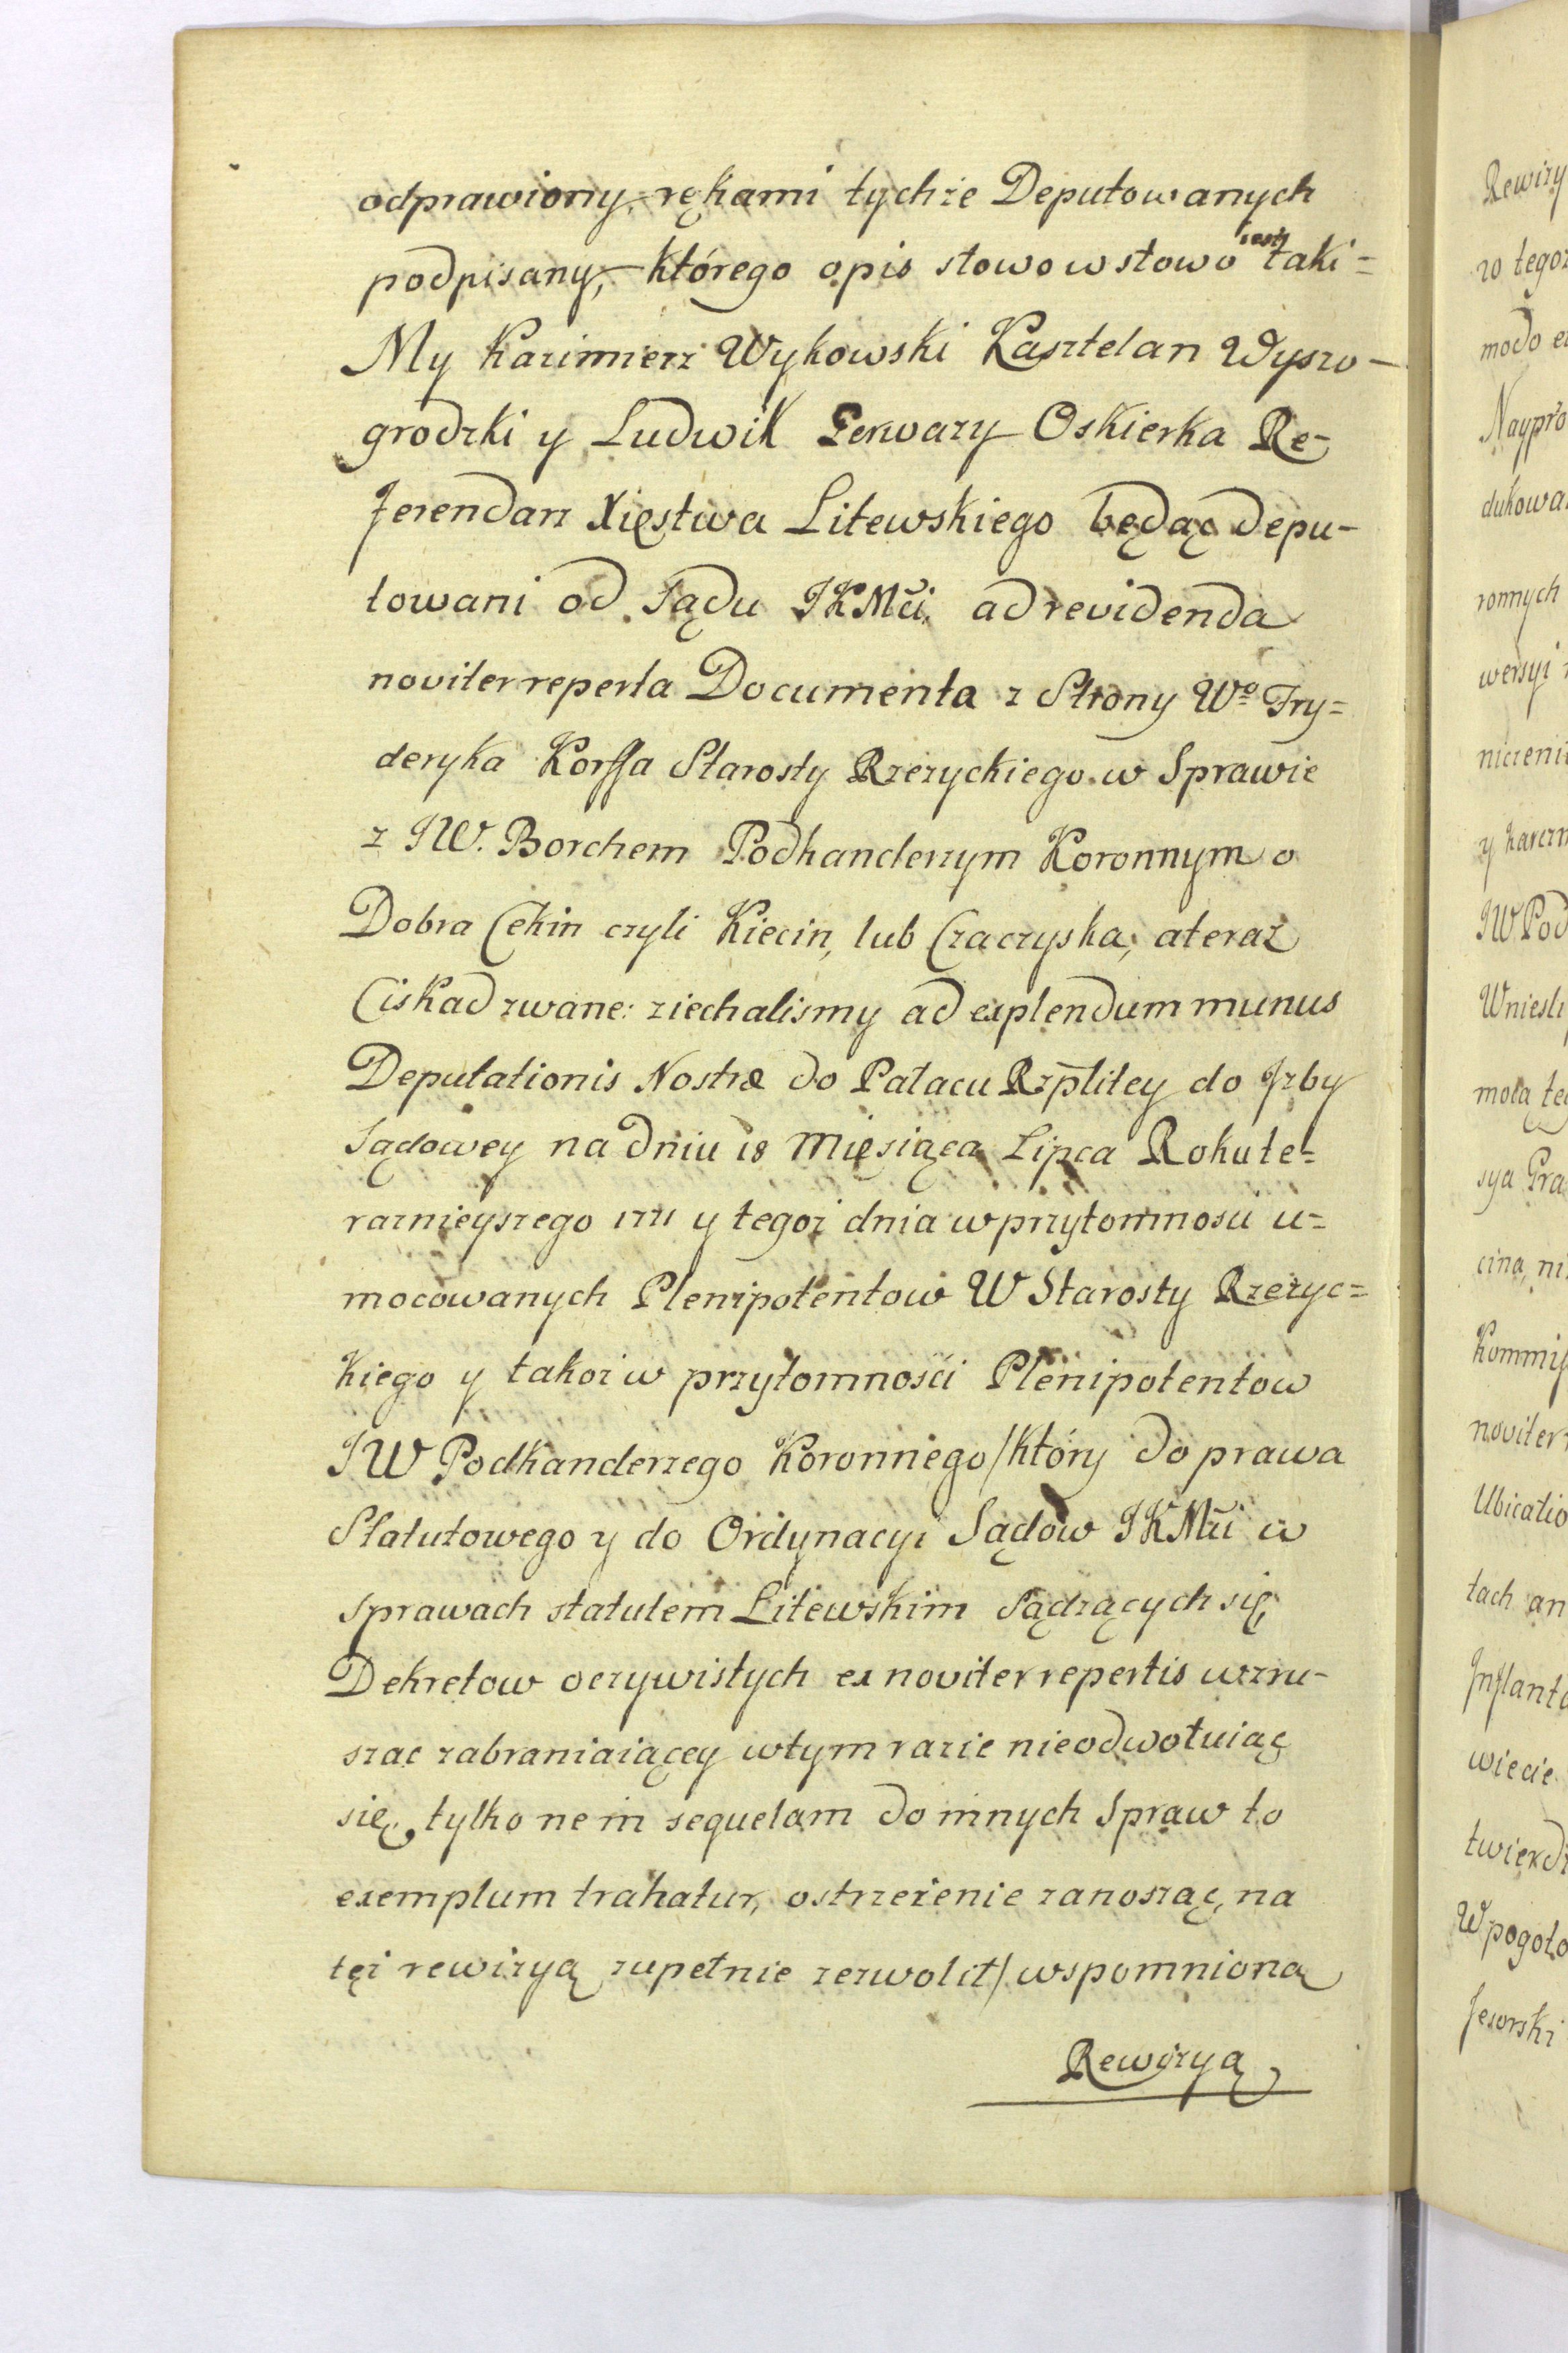 odprawiony, rękami tychże Deputowanych
podpisany, którego opis słowo w słowo iest taki =
My Kazimierz Wykowski Kasztelan Wyszo-
grodzki y Ludwik Gerwazy Oskierka Re-
ferendarz Xięstwa Litewskiego będąc depu-
towani od Sądu JKMći, ad revidenda
noviter reperta Documenta z Strony Wo Fry=
deryka Korffa Starosty Rzeżyckiego w Sprawie
z JW. Borchem Podkanclerzym Koronnym o
Dobra Cekin czyli Kiecin, lub Czaczyska, a teraz
Ciskad zwane: ziechalismy ad explendum munus
Deputationis Nostræ do Pałacu Rzplitey do Jzby
Sądowey na dniu 18 Miesiąca Lipca Roku te=
raznieyszego 1771 y tegoż dnia w przytomności u=
mocowanych Plenipotentow W Starosty Rzeżyc=
kiego y takoż w przytomności Plenipotentow
JW Podkanclerzego Koronnego /który do prawa
Statutowego y do Ordynacyi Sądow JKMći w
sprawach statutem Litewskim Sądzących się,
Dekretow oczywistych ex noviter repertis wzru-
szac zabraniaiącey w tym razie nieodwołuiąc
się, tylko ne in sequelam do innych Spraw to
exemplum trahatur, ostrzeżenie zanosząc, na
tęż rewizyą zupełnie zezwolił/ wspomnioną
Rewizyą
Rewizy
zo tegoż
modo e
Naypro
dukowa
ronnych
wersyi
niczeni
y karcz
JW Pod
Wniesli
motą te
sya Pra
ciną, ni
Kommis
noviter
Ubicatio
tach an
Jnflant
wiecie
twierdz
W pogoto